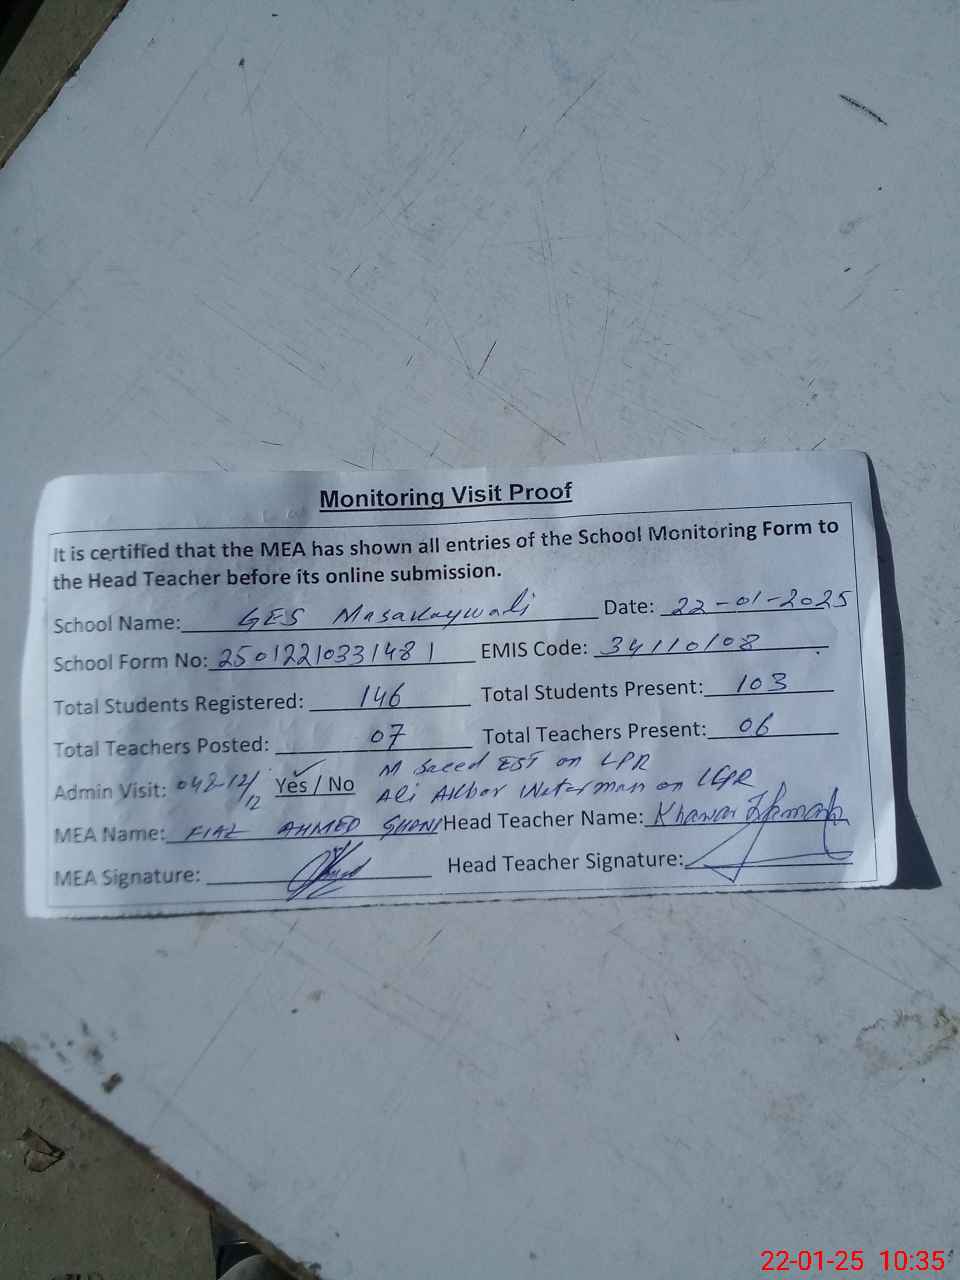 Monitoring Visit Proof
It is certified that the MEA has shown all entries of the School Monitoring Form to
the Head Teacher before its online submission.
School Name: GES Masakaywali Date: 22-01-2025
School Form No: 25012210331481 EMIS Code: 34110108
Total Students Registered: 146 Total Students Present: 103
Total Teachers Posted: 07 Total Teachers Present: 06
Admin Visit: Yes / No M Saeed EST on LPR
Ali Akbar Waterman on LPR
MEA Name: FIAZ AHMED GHANI Head Teacher Name: Khawar
MEA Signature: Head Teacher Signature:
22-01-25 10:35